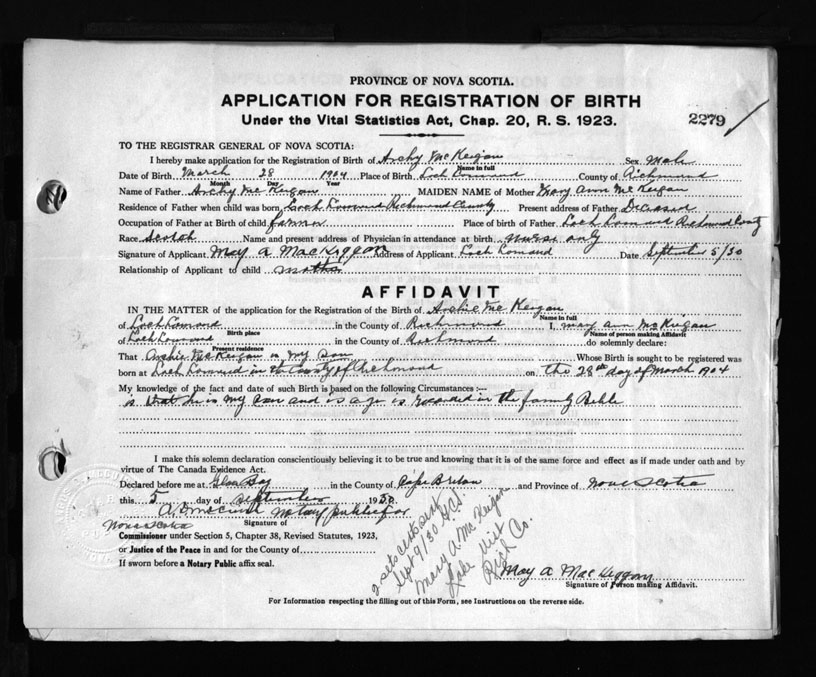 PROVINCE OF NOVA SCOTIA.
APPLICATION FOR REGISTRATION OF BIRTH
Under the Vital Statistics Act, Chap. 20, R. S. 1923.
2279
TO THE REGISTRAR GENERAL OF NOVA SCOTIA:
I hereby make application for the Registration of Birth of Archy McKeigan Sex Male
Name in full
Date of Birth March 28 1904 Place of Birth Loch Lomond County of Richmond
Month Day Year
Name of Father Archy McKeigan MAIDEN NAME of Mother Mary Ann McKeigan
Residence of Father when child was born Loch Lomond Richmond County Present address of Father Deceased
Occupation of Father at Birth of child farmer Place of birth of Father Loch Lomond Richmond County
Race Scotch Name and present address of Physician in attendance at birth nurse only
Signature of Applicant May A MacKiggan Address of Applicant Loch Lomond Date September 5/30
Relationship of Applicant to child mother
AFFIDAVIT
IN THE MATTER of the application for the Registration of the Birth of Archie McKeigan
Name in full
of Loch Lomond in the County of Richmond I, Mary Ann McKeigan
Birth place Name of person making Affidavit
of Loch Lomond in the County of Richmond do solemnly declare:
Present residence
That Archie McKeigan is my son Whose Birth is sought to be registered was
born at Loch Lomond in the County of Richmond on the 28th day of March 1904
My knowledge of the fact and date of such Birth is based on the following Circumstances :—
is that he is my son and is age is recorded in the family Bible
I make this solemn declaration conscientiously believing it to be true and knowing that it is of the same force and effect as if made under oath and by
virtue of The Canada Evidence Act.
Declared before me at Glace Bay in the County of Cape Breton and Province of Nova Scotia
this 5 day of September 1930
Notary public for
Nova Scotia Signature of
Commissioner under Section 5, Chapter 38, Revised Statutes, 1923,
or Justice of the Peace in and for the County of
If sworn before a Notary Public affix seal.
2 sets certs sent
Sept 9/30
Mary A McKeigan
Lake
Rich Co.
May A MacKiggan
Signature of Person making Affidavit.
For Information respecting the filling out of this Form, see Instructions on the reverse side.